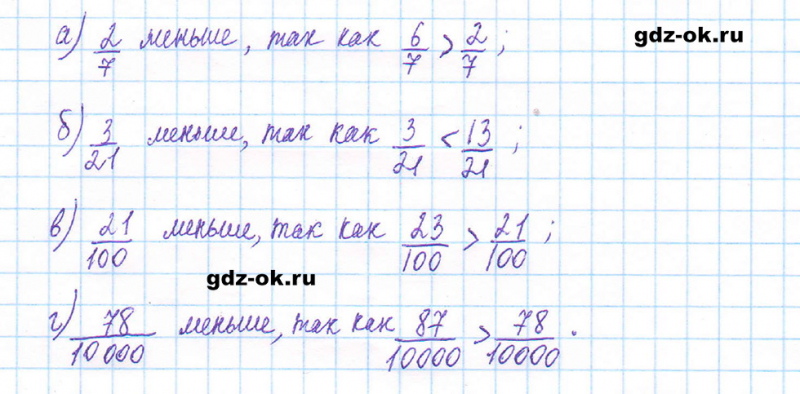 а) 2/7 меньше, так как 6/7 > 2/7 ; gdz-ok.ru
б) 3/21 меньше, так как 3/21 < 13/21 ;
в) 21/100 меньше, так как 23/100 > 21/100 ;
gdz-ok.ru
г) 78/10000 меньше, так как 87/10000 > 78/10000 .